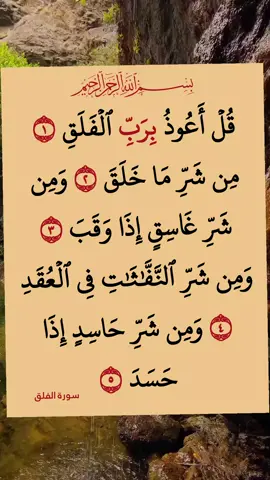 بِسْمِ ٱللَّهِ ٱلرَّحْمَٰنِ ٱلرَّحِيمِ
قُلۡ أَعُوذُ بِرَبِّ ٱلۡفَلَقِ ١
مِن شَرِّ مَا خَلَقَ ٢ وَمِن
شَرِّ غَاسِقٍ إِذَا وَقَبَ ٣
وَمِن شَرِّ ٱلنَّفَّٰثَٰتِ فِي ٱلۡعُقَدِ
٤ وَمِن شَرِّ حَاسِدٍ إِذَا
حَسَدَ ٥
سورة الفلق